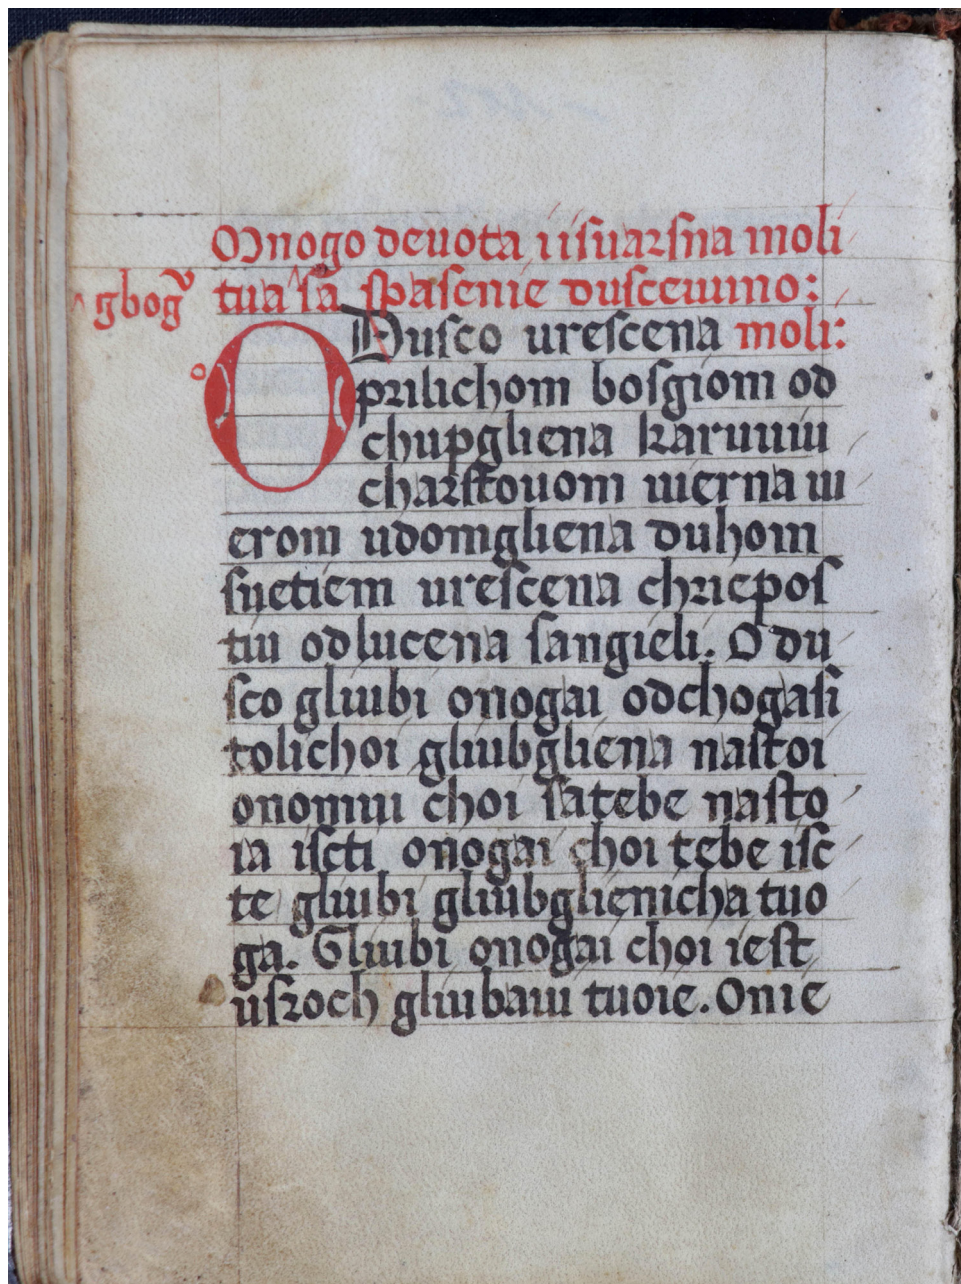 Mnogo deuota iisuarsna moli
tua sa spasenie dusceuuno:
gbog
O Dusco urescena moli:
prilichom bosgiom od
chupgliena karuuiu
charstouom uierna ui
erom udomgliena duhom
suetiem urescena chriepos
tiu odlucena sangieli. O du
sco gliubi onogai odchogasi
tolichoi gliubgliena nastoi
onomui choi satebe nasto
ia iscti onogai choi tebe isc
te gliubi gliubglienicha tuo
ga. Gliubi onogai choi iest
usroch gliubaui tuoie. Onie